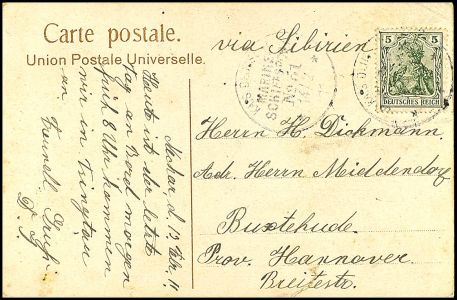 Carte postale.
Union Postale Universelle.
via Sibirien
5 5
DEUTSCHES REICH
MARINE
SCHIFFSPOST
No 61
Herrn H. Dickmann.
Adr. Herrn Middendorf
Buxtehude.
Prov. Hannover
Breitestr.
d. 13. Febr. 11.
Heute ist der letzte
Tag an Bord morgen
früh 8 Uhr kommen
wir in Tsingtau
an
Freundl. Gruß